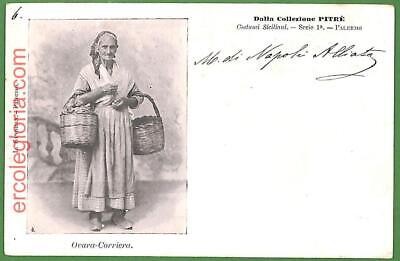 6.
Dalla Collezione PITRÈ
Costumi Siciliani. — Serie 1ª. — PALERMO
M. di Napoli Alliata
ercolegloria.com
4.
Ovara-Corriera.